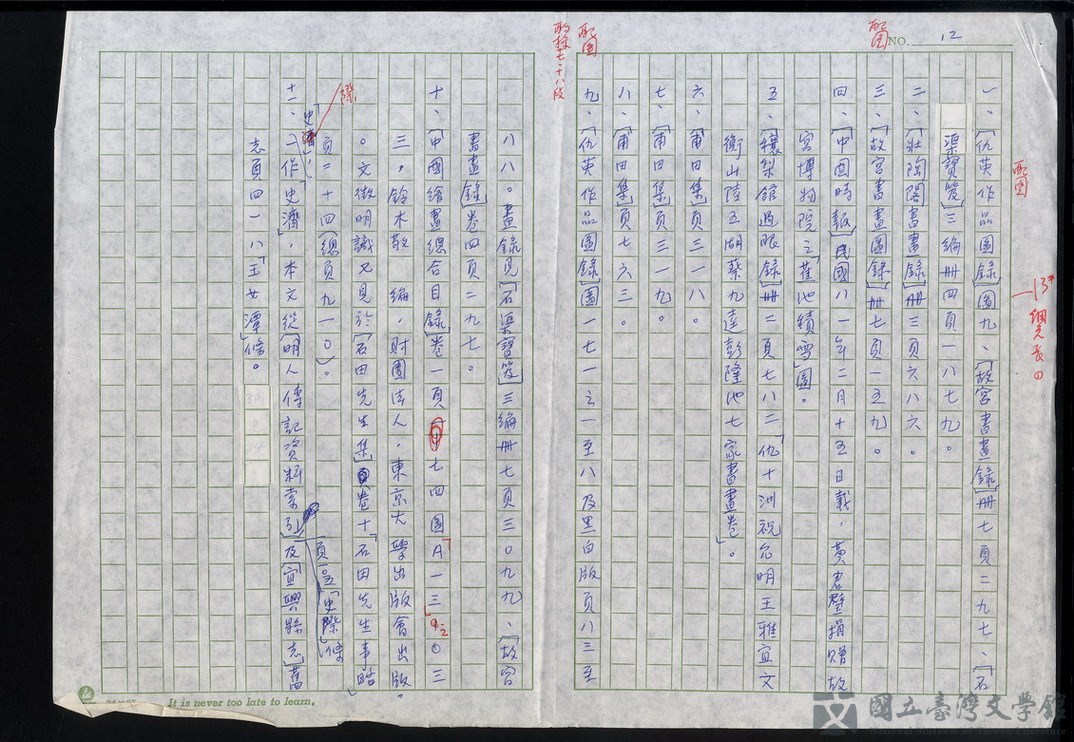 NO. 12
配圖
配圖
一、﹝仇英作品圖錄﹞圖九、﹝故宮書畫錄﹞冊七頁二九七、﹝石
渠寶笈﹞三編冊四頁一八七九。
二、﹝壯陶閣書畫錄﹞冊三頁六八六。
三、﹝故宮書畫圖錄﹞冊七頁一五九。
四、﹝中國時報﹞民國八一年二月十五日載，黃君璧捐贈故
宮博物院之「蓮池績雪圖」。
五、﹝穰梨館過眼錄﹞冊二頁七八二「仇十洲祝允明王雅宜文
衡山陸五湖蔡九逵彭隆池七家書畫卷」。
六、﹝甫田集﹞頁三一八。
七、﹝甫田集﹞頁三一九。
八、﹝甫田集﹞頁七六三。
九、﹝仇英作品圖錄﹞圖一七一之一至八及黑白版頁八三至
配圖
八八。畫錄見﹝石渠寶笈﹞三編冊七頁三〇九九、﹝故宮
書畫錄﹞卷四頁二九七。
十、﹝中國繪畫總合目錄﹞卷一頁七四圖A一三9-2〇三
三，鈴木敬 編，財團法人，東京大學出版會出版。
。文徵明識又見於﹝石田先生集﹞卷十「石田先生事略」
頁二十四（總頁九一〇）。
史濟，
際
頁「史際」條
十一、「作史濟」，本文從﹝明人傳記資料索引﹞及﹝宜興縣志﹞舊
志頁四一八「玉女潭」條。
It is never too late to learn,
國立臺灣文學館
National Museum of Taiwan Literature